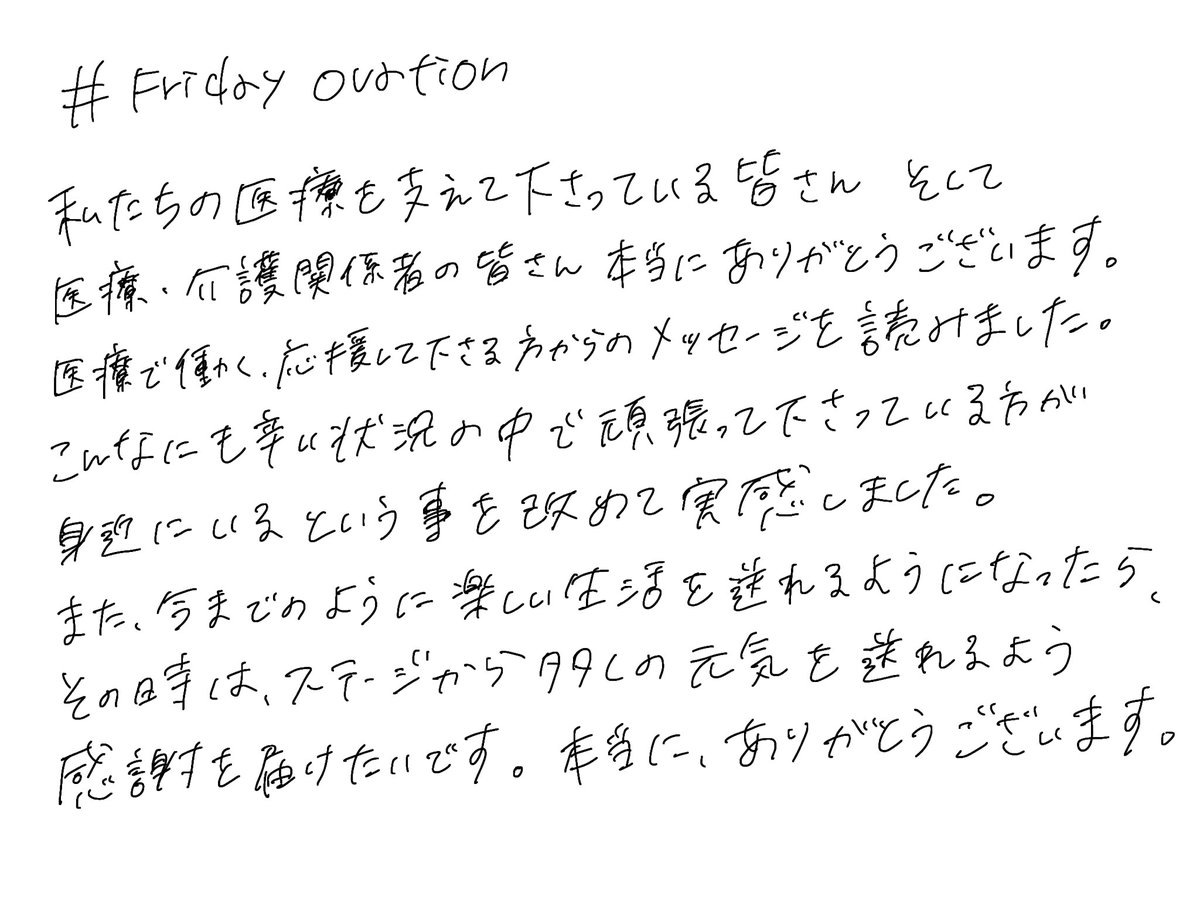 # Friday ovation
私たちの医療を支えて下さっている皆さん そして
医療・介護関係者の皆さん 本当にありがとうございます。
医療で働く、応援して下さる方からのメッセージを読みました。
こんなにも辛い状況の中で頑張って下さっている方が
身近にいるという事を改めて実感しました。
また、今までのように楽しい生活を送れるようになったら、
その時は、ステージから沢山の元気を送れるよう
感謝を届けたいです。本当に、ありがとうございます。